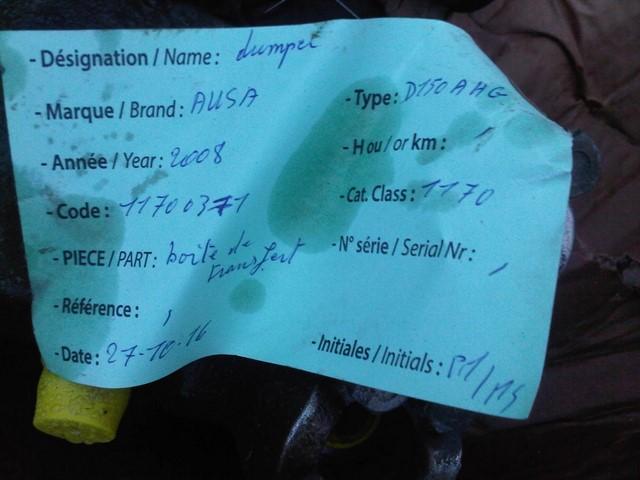 - Désignation / Name : dumper
- Marque / Brand : AUSA
- Type : D150AHG
- Année / Year : 2008
- H ou / or km :
- Code : 11700371
- Cat. Class : 1170
- PIECE / PART : boite de transfert
- N° série / Serial Nr :
- Référence :
- Date : 27-10-16
- Initiales / Initials :